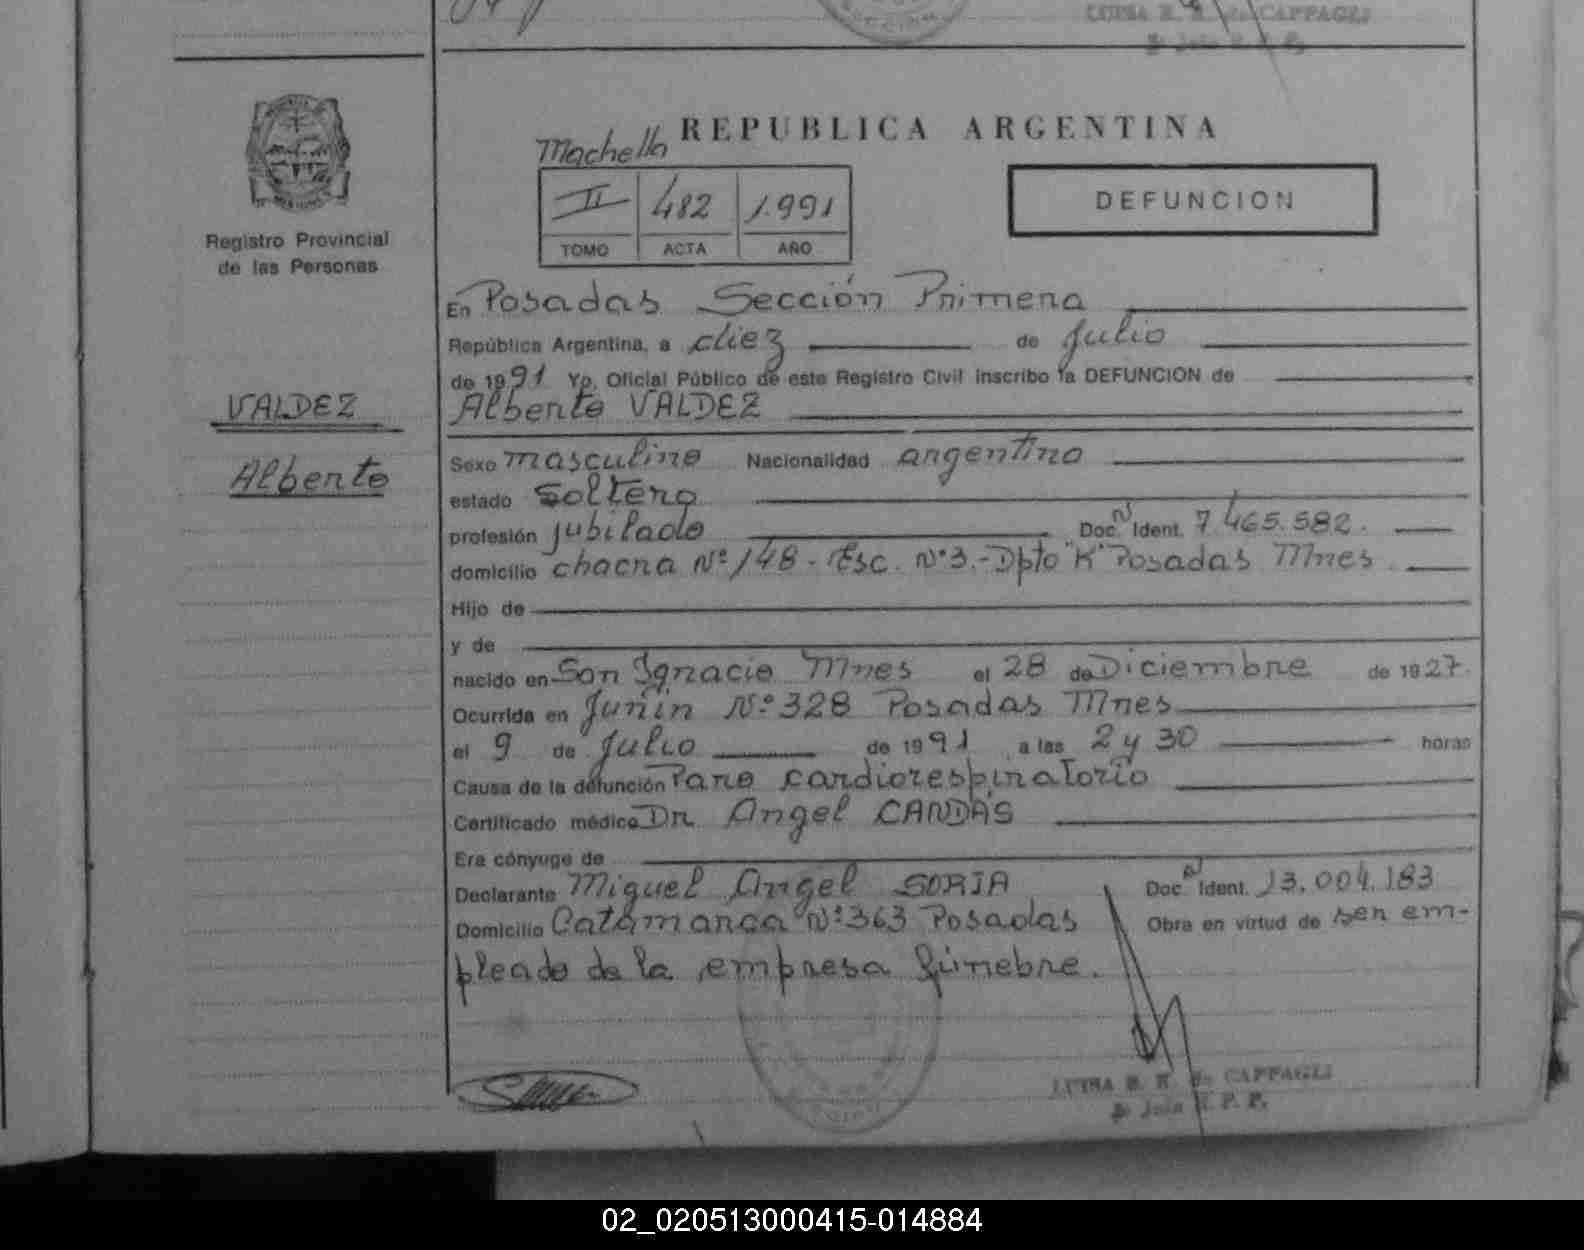 LUISA R. R. de CAPPAGLI
REPUBLICA ARGENTINA
Machello
II 482 1.991
TOMO ACTA AÑO
DEFUNCION
Registro Provincial
de las Personas
En Posadas Sección Primera
República Argentina, a diez de Julio
de 1991 Yo, Oficial Público de este Registro Civil inscribo la DEFUNCION de
Alberto VALDEZ
VALDEZ
Alberto
Sexo masculino Nacionalidad argentina
estado Soltero
profesión jubilado Doc. N Ident. 7.465.582.
domicilio chacra Nº 148 - Esc. Nº 3.- Dpto "K" Posadas Mnes.
Hijo de
y de
nacido en San Ignacio Mnes el 28 de Diciembre de 1927.
Ocurrida en Junín Nº 328 Posadas Mnes
el 9 de Julio de 1991 a las 2 y 30 horas
Causa de la defunción Paro cardiorespiratorio
Certificado médico Dr Angel CANDÁS
Era cónyuge de
Declarante Miguel Angel SORIA Doc. N Ident. 13.004.183
Domicilio Catamarca Nº 363 Posadas Obra en virtud de ser em-
pleado de la empresa fúnebre.
LUISA R. R. de CAPPAGLI
02_020513000415-014884